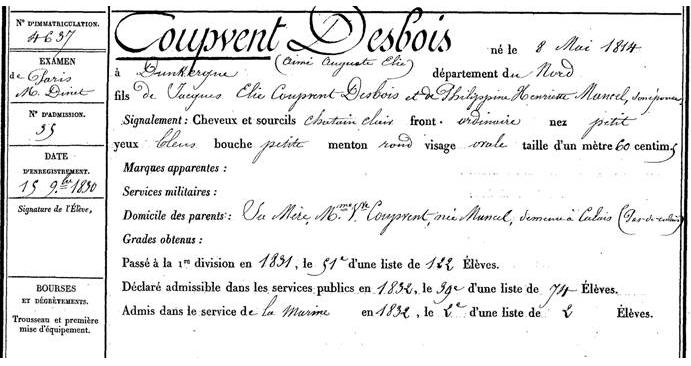 N° D'IMMATRICULATION.
4637
EXAMEN
de Paris
M. Dinet
N° D'ADMISSION.
35
DATE
D'ENREGISTREMENT.
15 9bre 1830
Signature de l'Élève,
BOURSES
ET DÉGRÈVEMENTS.
Trousseau et première
mise d'équipement.
Coupvent Desbois né le 8 Mai 1814
(Aimé Auguste Elie)
à Dunkerque département du Nord
fils de Jacques Elie Coupvent Desbois et de Philippine Henriette Mancel, son épouse
Signalement : Cheveux et sourcils chatain clair front ordinaire nez petit
yeux bleus bouche petite menton rond visage ovale taille d'un mètre 60 centim.
Marques apparentes :
Services militaires :
Domicile des parents : Sa Mère, Mme Ve Coupvent, née Mancel, demeure à Calais (Pas-de-calais)
Grades obtenus :
Passé à la 1re division en 1831, le 51e d'une liste de 122 Élèves.
Déclaré admissible dans les services publics en 1832, le 39e d'une liste de 74 Élèves.
Admis dans le service de la Marine en 1832, le 2e d'une liste de 2 Élèves.